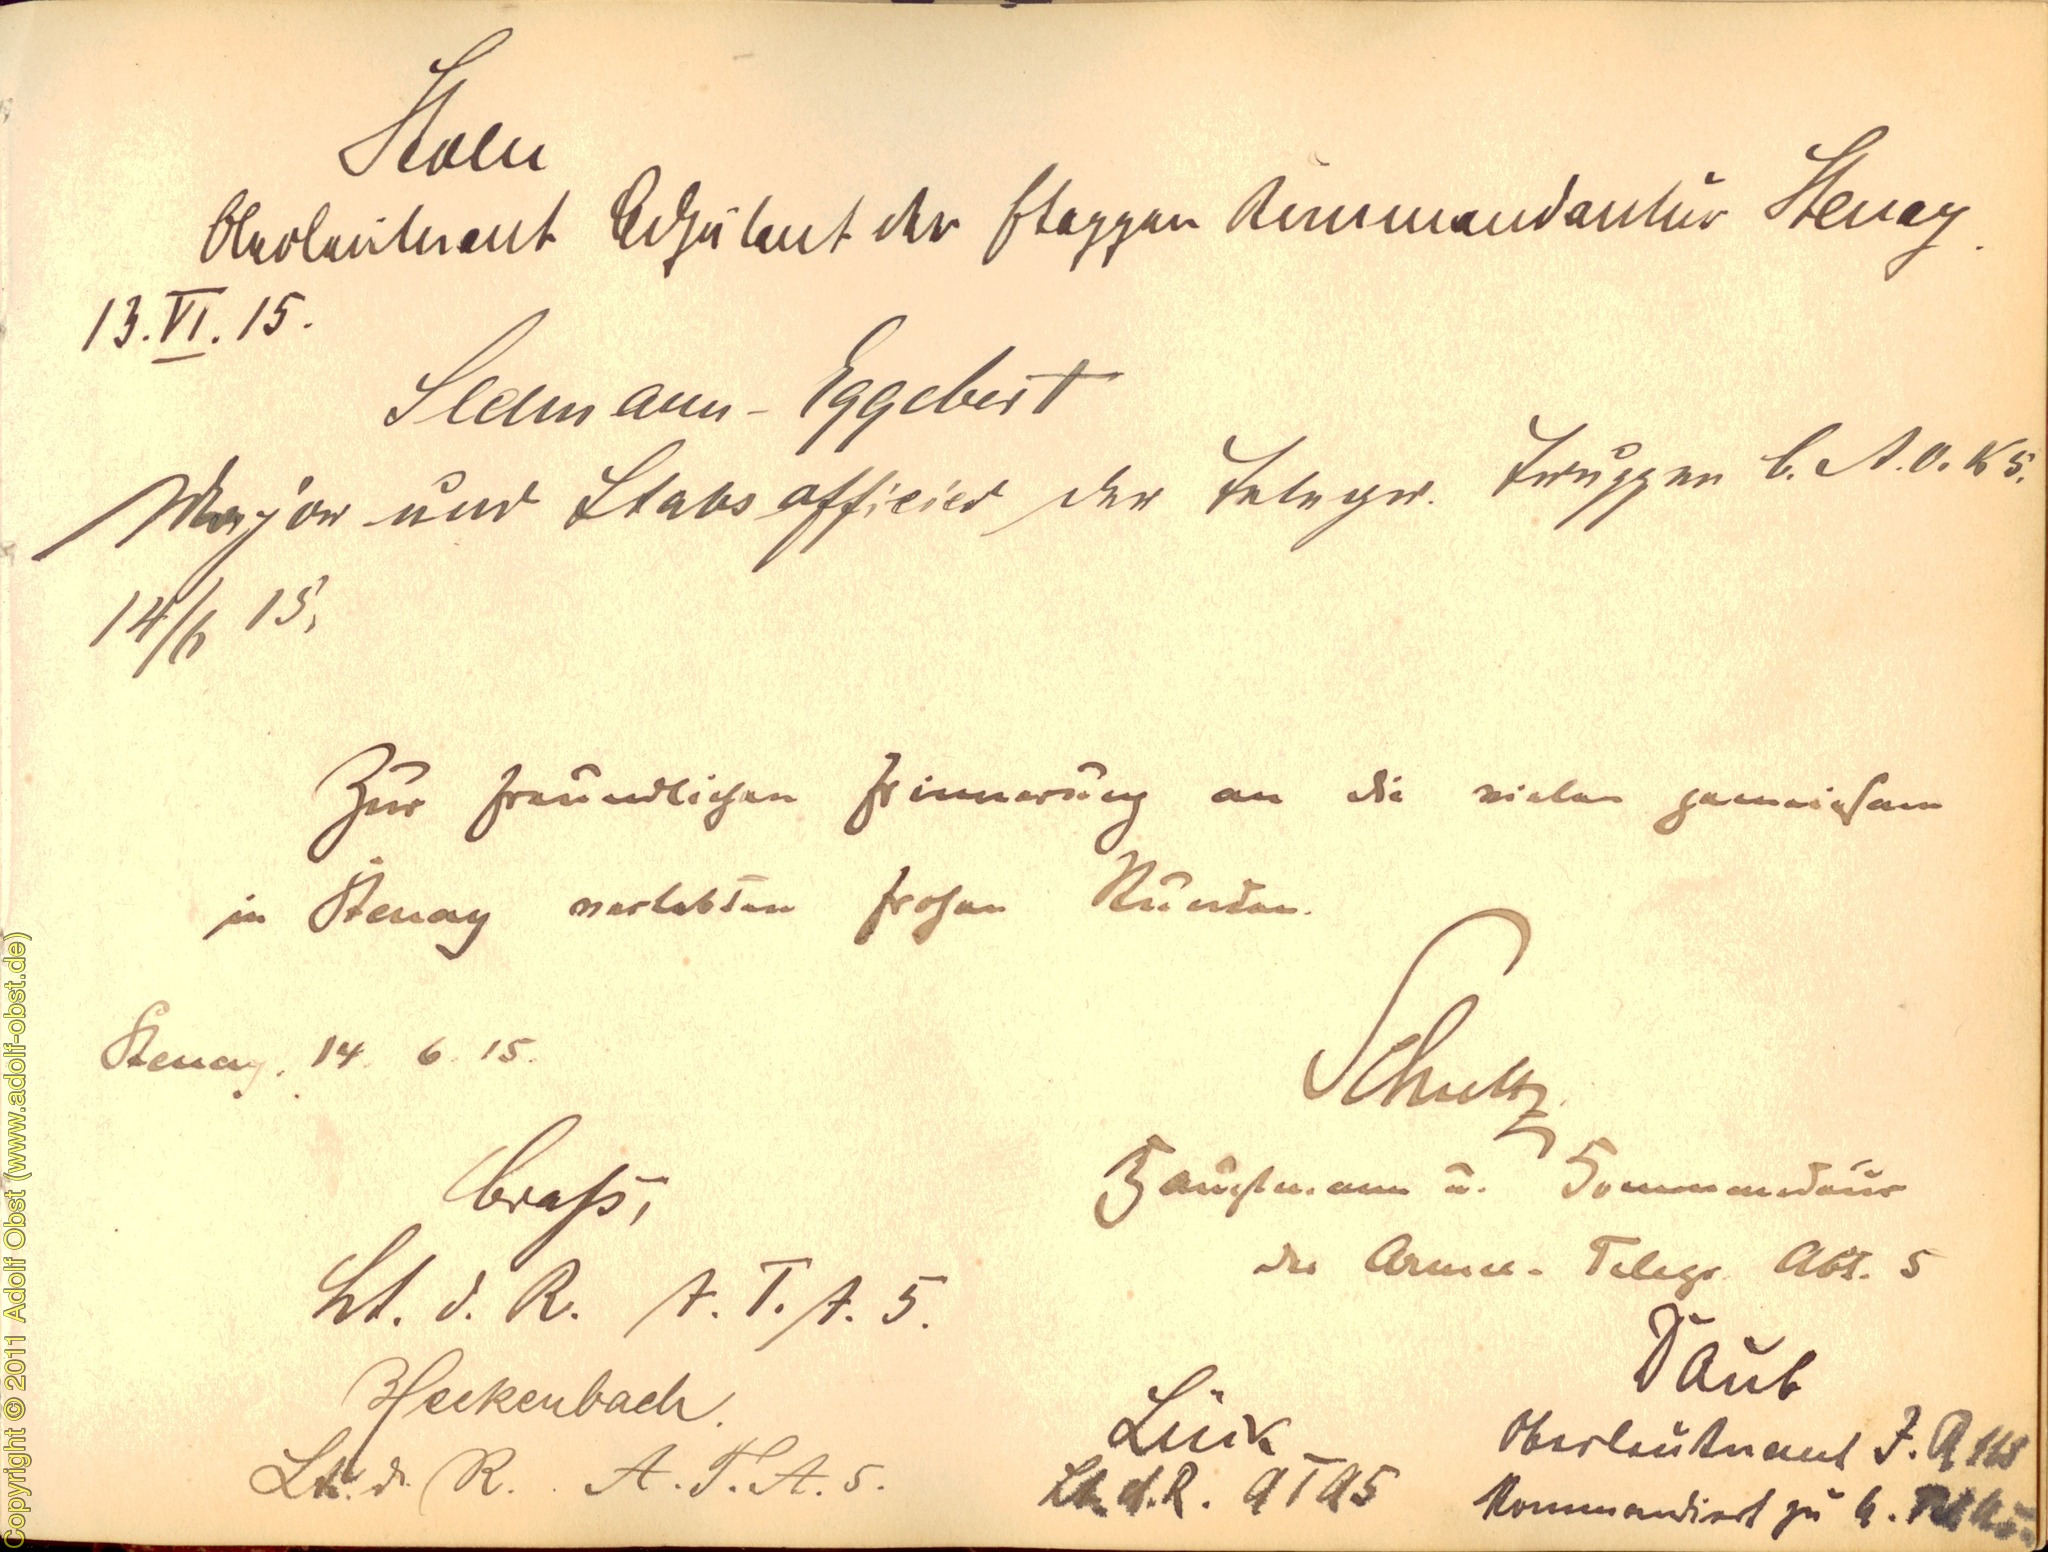 Oberleutnant Adjutant der Etappen Kommandantur Stenay.
13.VI.15.
Sldmann-Eggebert
Major und Stabsofficier der Telegr. Truppen b. A.O.K 5.
14/6 15,
Zur freundlichen Erinnerung an die vielen gemeinsam
in Stenay verlebten frohen Stunden.
Stenay, 14. 6. 15.
Schultz
Hauptmann u. Kommandeur
der Armee-Telegr. Abt. 5
Lt. d. R. A.T.A. 5.
Heckenbach.
Lt. d. R. A.T.A. 5.
Lück
Lt. d. R. ATA5
Daub
Oberleutnant
Kommandiert zu
Copyright © 2011 Adolf Obst (www.adolf-obst.de)